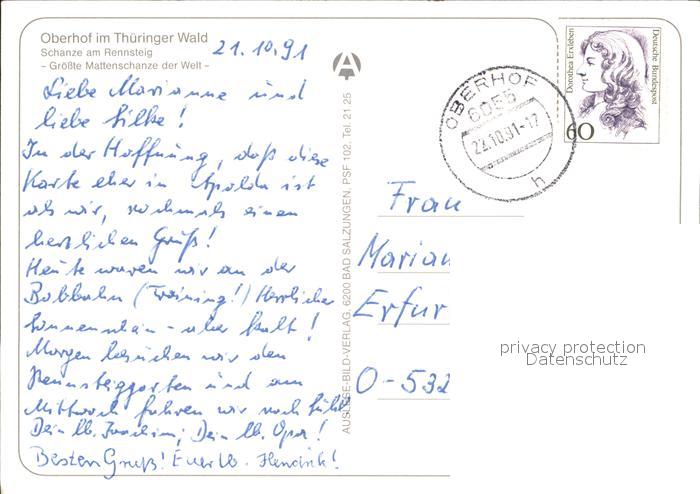 Oberhof im Thüringer Wald
Schanze am Rennsteig
- Größte Mattenschanze der Welt -
21.10.91
Liebe Marianne und
liebe Silke!
In der Hoffnung, daß diese
Karte eher in Apolda ist
als wir, nochmals einen
herzlichen Gruß!
Heute waren wir an der
Bobbahn (Training!) Herrlicher
Sonnenschein - aber kalt!
Morgen besuchen wir den
Rennsteiggarten und am
Mittwoch fahren wir nach
Dein lb. Joachim; Dein lb. Opa!
Besten Gruß! Euer lb. Hendrik!
AUSLESE-BILD-VERLAG, 6200 BAD SALZUNGEN, PSF 102, Tel. 21 25
A
OBERHOF
6055
22.10.91-12
h
Dorothea Erxleben
Deutsche Bundespost
60
Frau
Marian
Erfur
O-532
privacy protection
Datenschutz